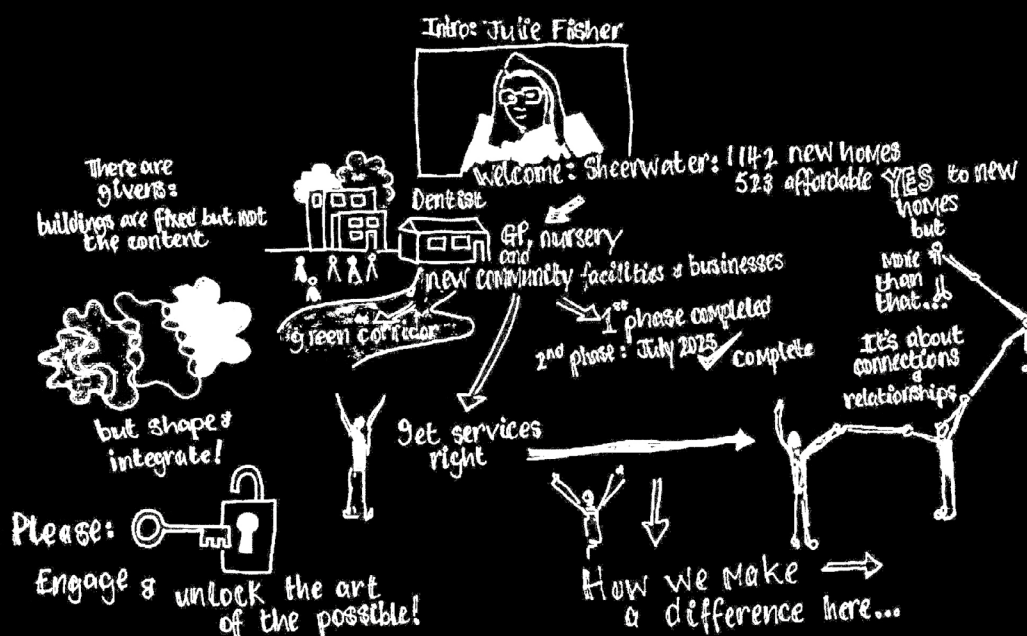 Intro: Julie Fisher
Welcome: Sheerwater: 1142 new homes
523 affordable
YES to new
homes
but
more
than
that...!!
It's about
connections
&
relationships
There are
givens:
buildings are fixed but not
the content
but shape &
integrate!
Dentist
GP, nursery
and
new community facilities & businesses
green corridor
1st phase completed
2nd phase: July 2025
complete
get services
right
Please:
Engage & unlock the art
of the possible!
How we make
a difference here...